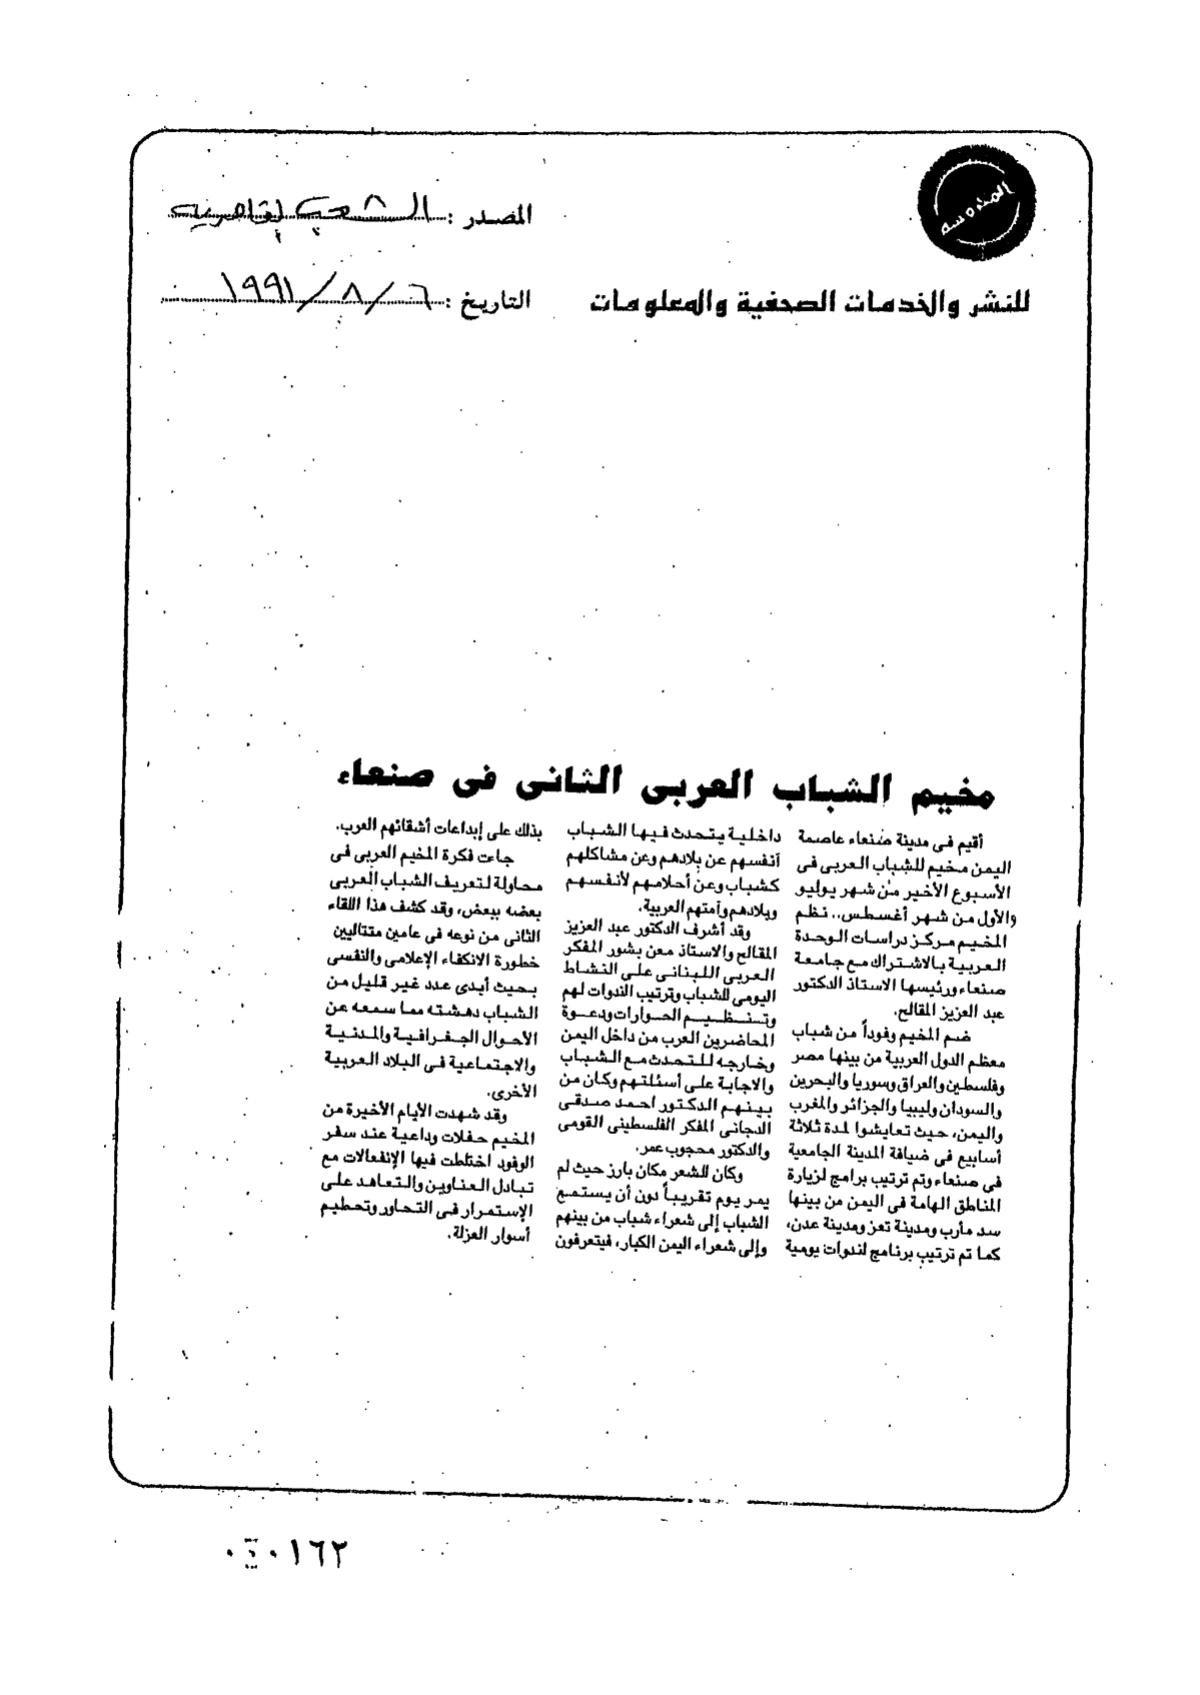 المدوسه
المصدر : الشعب القاهرية
للنشر والخدمات الصحفية والمعلومات
التاريخ : ٦/٨/١٩٩١
مخيم الشباب العربى الثانى فى صنعاء
أقيم فى مدينة صنعاء عاصمة
اليمن مخيم للشباب العربى فى
الأسبوع الأخير من شهر يوليو
والأول من شهر أغسطس.. نظم
المخيم مركز دراسات الوحدة
العربية بالاشتراك مع جامعة
صنعاء ورئيسها الاستاذ الدكتور
عبد العزيز المقالح.
ضم المخيم وفوداً من شباب
معظم الدول العربية من بينها مصر
وفلسطين والعراق وسوريا والبحرين
والسودان وليبيا والجزائر والمغرب
واليمن، حيث تعايشوا لمدة ثلاثة
أسابيع فى ضيافة المدينة الجامعية
فى صنعاء وتم ترتيب برامج لزيارة
المناطق الهامة فى اليمن من بينها
سد مأرب ومدينة تعز ومدينة عدن،
كما تم ترتيب برنامج لندوات يومية
داخلية يتحدث فيها الشباب
أنفسهم عن بلادهم وعن مشاكلهم
كشباب وعن أحلامهم لأنفسهم
وبلادهم وأمتهم العربية.
وقد أشرف الدكتور عبد العزيز
المقالح والاستاذ معن بشور المفكر
العربى اللبنانى على النشاط
اليومى للشباب وترتيب الندوات لهم
وتنظيم الحوارات ودعوة
المحاضرين العرب من داخل اليمن
وخارجه للتحدث مع الشباب
والاجابة على أسئلتهم وكان من
بينهم الدكتور احمد صدقى
الدجانى المفكر الفلسطينى القومى
والدكتور محجوب عمر.
وكان للشعر مكان بارز حيث لم
يمر يوم تقريباً دون أن يستمع
الشباب إلى شعراء شباب من بينهم
وإلى شعراء اليمن الكبار، فيتعرفون
بذلك على إبداعات أشقائهم العرب.
جاءت فكرة المخيم العربى فى
محاولة لتعريف الشباب العربى
بعضه ببعض، وقد كشف هذا اللقاء
الثانى من نوعه فى عامين متتاليين
خطورة الانكفاء الإعلامى والنفسى
بحيث أبدى عدد غير قليل من
الشباب دهشته مما سمعه عن
الأحوال الجغرافية والمدنية
والاجتماعية فى البلاد العربية
الأخرى.
وقد شهدت الأيام الأخيرة من
المخيم حفلات وداعية عند سفر
الوفود اختلطت فيها الإنفعالات مع
تبادل العناوين والتعاهد على
الإستمرار فى التحاور وتحطيم
أسوار العزلة.